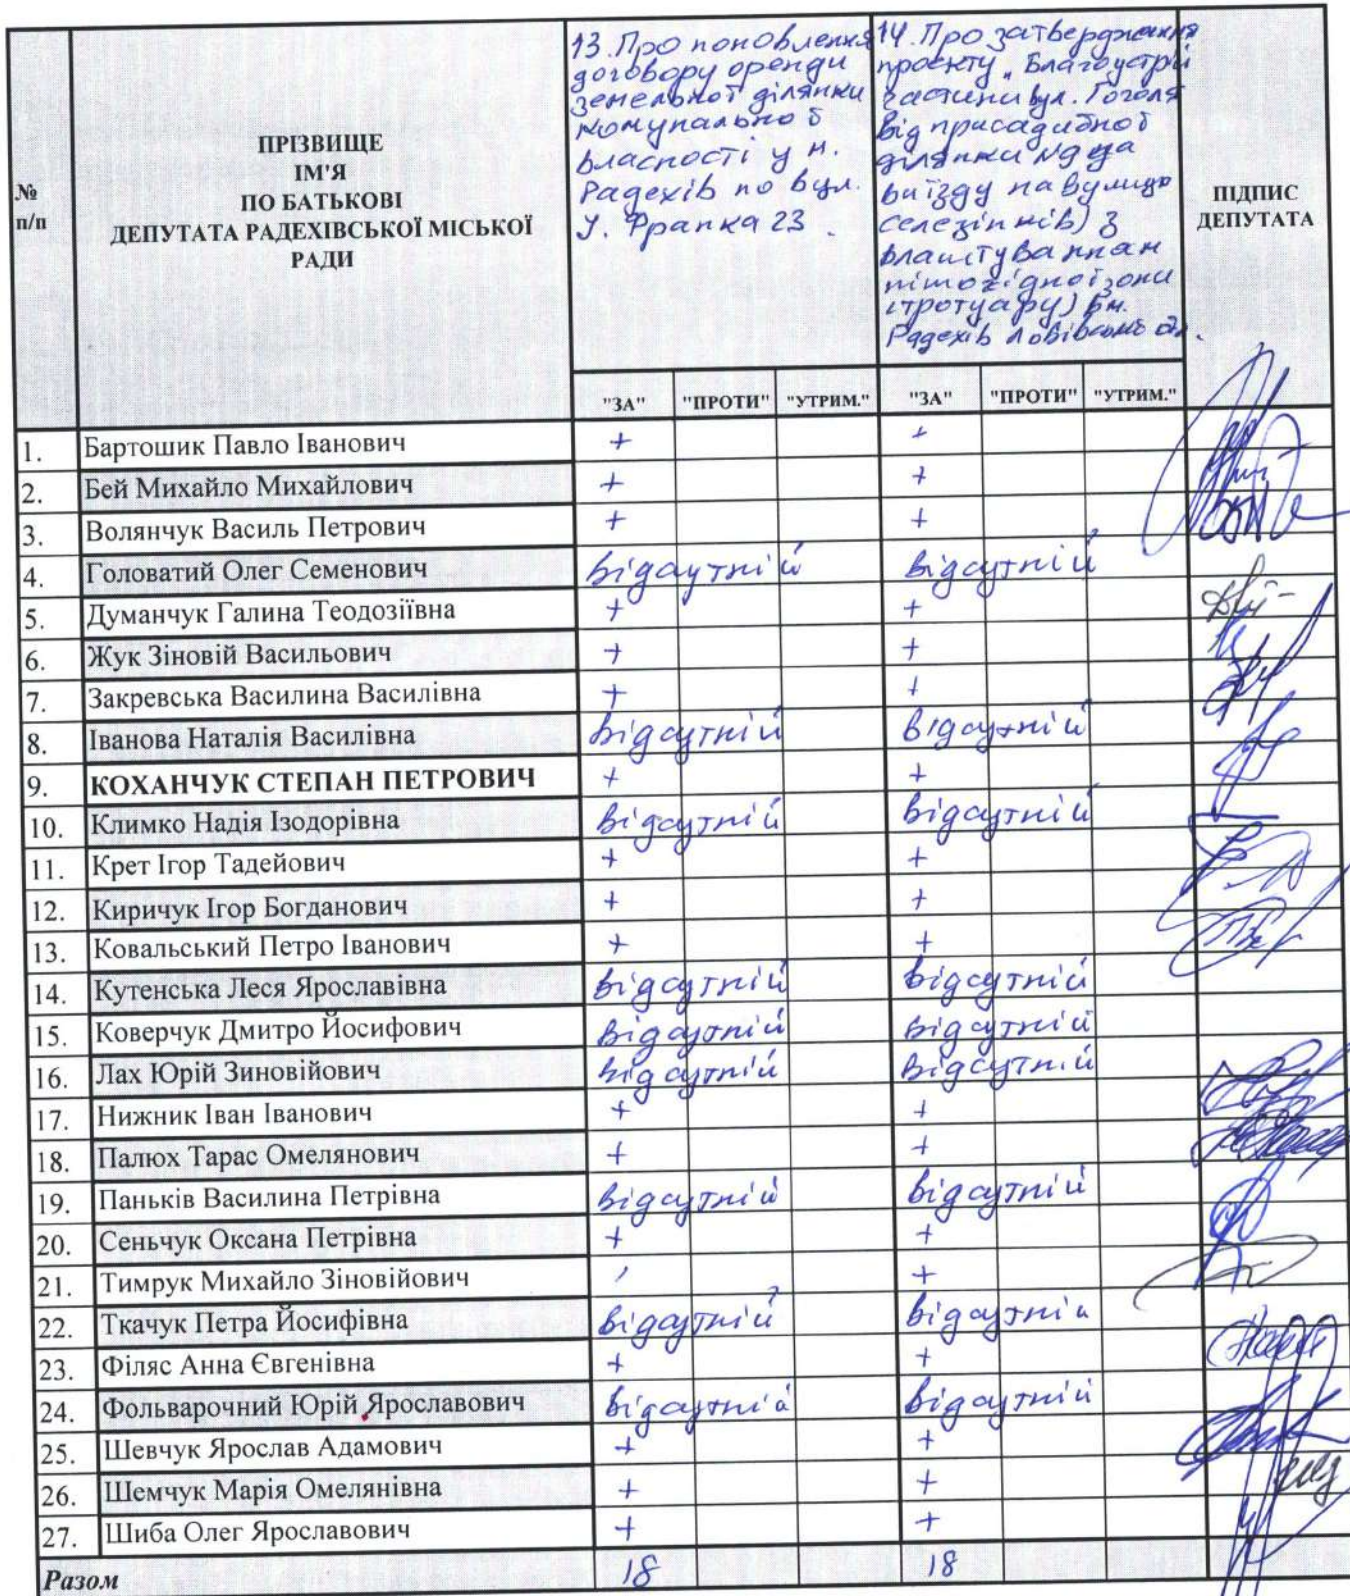 №
п/п
ПРІЗВИЩЕ
ІМ'Я
ПО БАТЬКОВІ
ДЕПУТАТА РАДЕХІВСЬКОЇ МІСЬКОЇ
РАДИ
13. Про поновлення
договору оренди
земельної ділянки
комунальної
власності у м.
Радехів по вул.
І. Франка 23.
14. Про затвердження
проєкту "Благоустрій
частини вул. Гоголя
від присадибної
ділянки до
виїзду на вулицю
Селезінків) з
влаштуванням
пішохідної зони
(тротуару) в м.
Радехів Львівської
ПІДПИС
ДЕПУТАТА
"ЗА" "ПРОТИ" "УТРИМ." "ЗА" "ПРОТИ" "УТРИМ."
1. Бартошик Павло Іванович + +
2. Бей Михайло Михайлович + +
3. Волянчук Василь Петрович + +
4. Головатий Олег Семенович відсутній відсутній
5. Думанчук Галина Теодозіївна + +
6. Жук Зіновій Васильович + +
7. Закревська Василина Василівна + +
8. Іванова Наталія Василівна відсутній відсутній
9. КОХАНЧУК СТЕПАН ПЕТРОВИЧ + +
10. Климко Надія Ізодорівна відсутній відсутній
11. Крет Ігор Тадейович + +
12. Киричук Ігор Богданович + +
13. Ковальський Петро Іванович + +
14. Кутенська Леся Ярославівна відсутній відсутній
15. Коверчук Дмитро Йосифович відсутній відсутній
16. Лах Юрій Зиновійович відсутній відсутній
17. Нижник Іван Іванович + +
18. Палюх Тарас Омелянович + +
19. Паньків Василина Петрівна відсутній відсутній
20. Сеньчук Оксана Петрівна + +
21. Тимрук Михайло Зіновійович / +
22. Ткачук Петра Йосифівна відсутній відсутній
23. Філяс Анна Євгенівна + +
24. Фольварочний Юрій Ярославович відсутній відсутній
25. Шевчук Ярослав Адамович + +
26. Шемчук Марія Омелянівна + +
27. Шиба Олег Ярославович + +
Разом 18 18